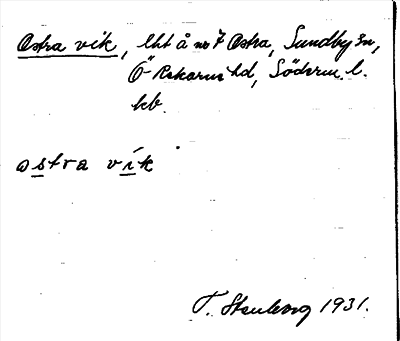 Ostra vik, lht å nr 7 Ostra, Sundby sn,
Ö Rekarne hd, Söderm. l.
kb.
ostra vik
T. Stenberg 1931.